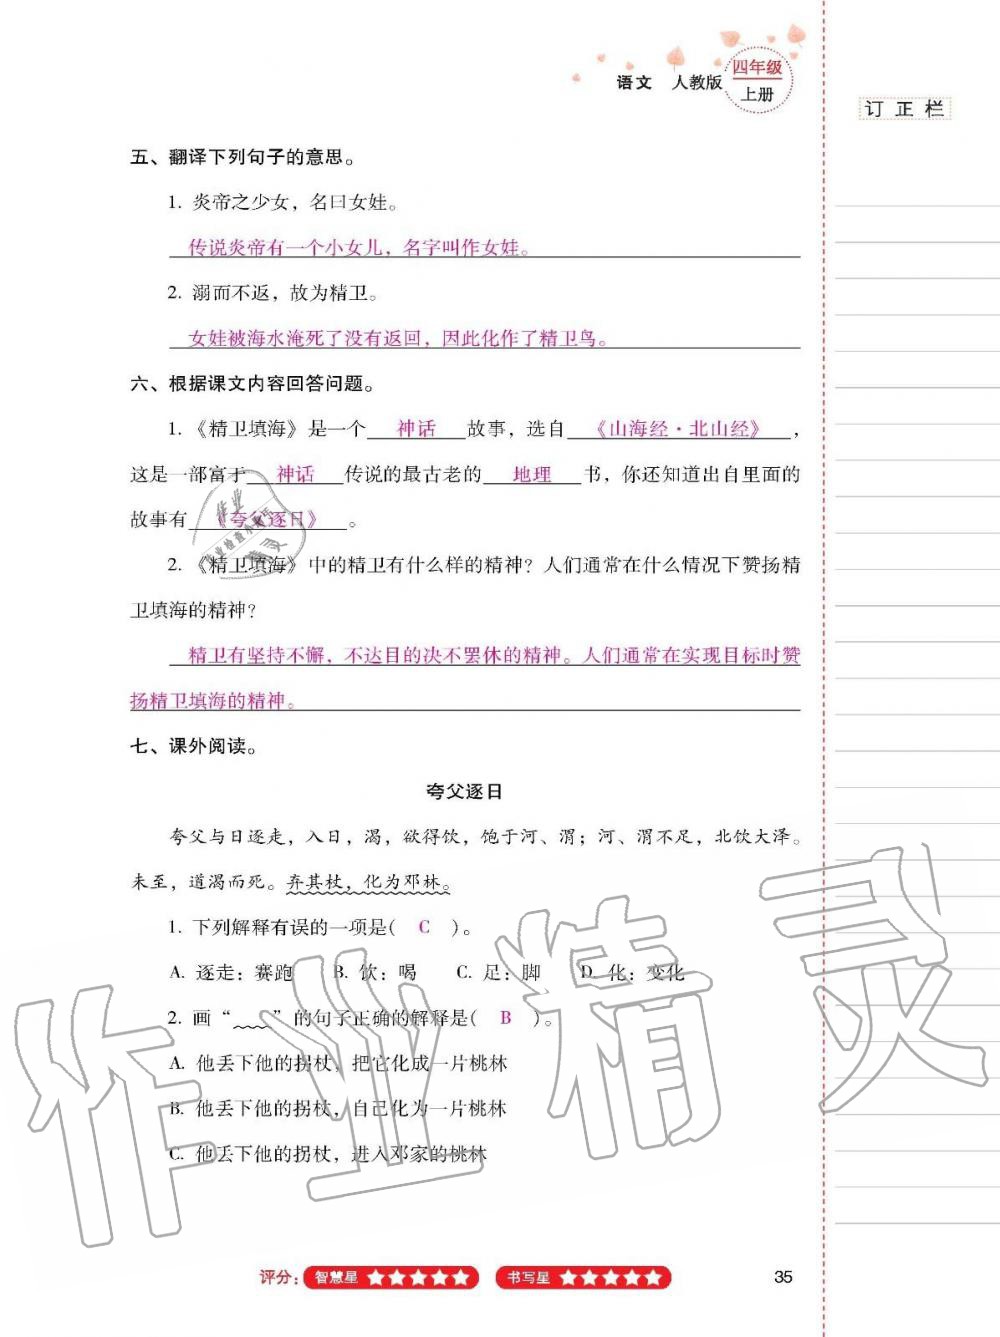 语文 人教版 四年级
上册
订正栏
五、翻译下列句子的意思。
1. 炎帝之少女，名曰女娃。
传说炎帝有一个小女儿，名字叫作女娃。
2. 溺而不返，故为精卫。
女娃被海水淹死了没有返回，因此化作了精卫鸟。
六、根据课文内容回答问题。
1.《精卫填海》是一个 神话 故事，选自 《山海经·北山经》 ，
这是一部富于 神话 传说的最古老的 地理 书，你还知道出自里面的
故事有 《夸父逐日》 。
2.《精卫填海》中的精卫有什么样的精神？人们通常在什么情况下赞扬精
卫填海的精神？
精卫有坚持不懈，不达目的决不罢休的精神。人们通常在实现目标时赞
扬精卫填海的精神。
七、课外阅读。
夸父逐日
夸父与日逐走，入日，渴，欲得饮，饱于河、渭；河、渭不足，北饮大泽。
未至，道渴而死。弃其杖，化为邓林。
1. 下列解释有误的一项是( C )。
A. 逐走：赛跑 B. 饮：喝 C. 足：脚 D. 化：变化
2. 画“﹏﹏”的句子正确的解释是( B )。
A. 他丢下他的拐杖，把它化成一片桃林
B. 他丢下他的拐杖，自己化为一片桃林
C. 他丢下他的拐杖，进入邓家的桃林
作业精灵
评分：智慧星 ★★★★★ 书写星 ★★★★★
35